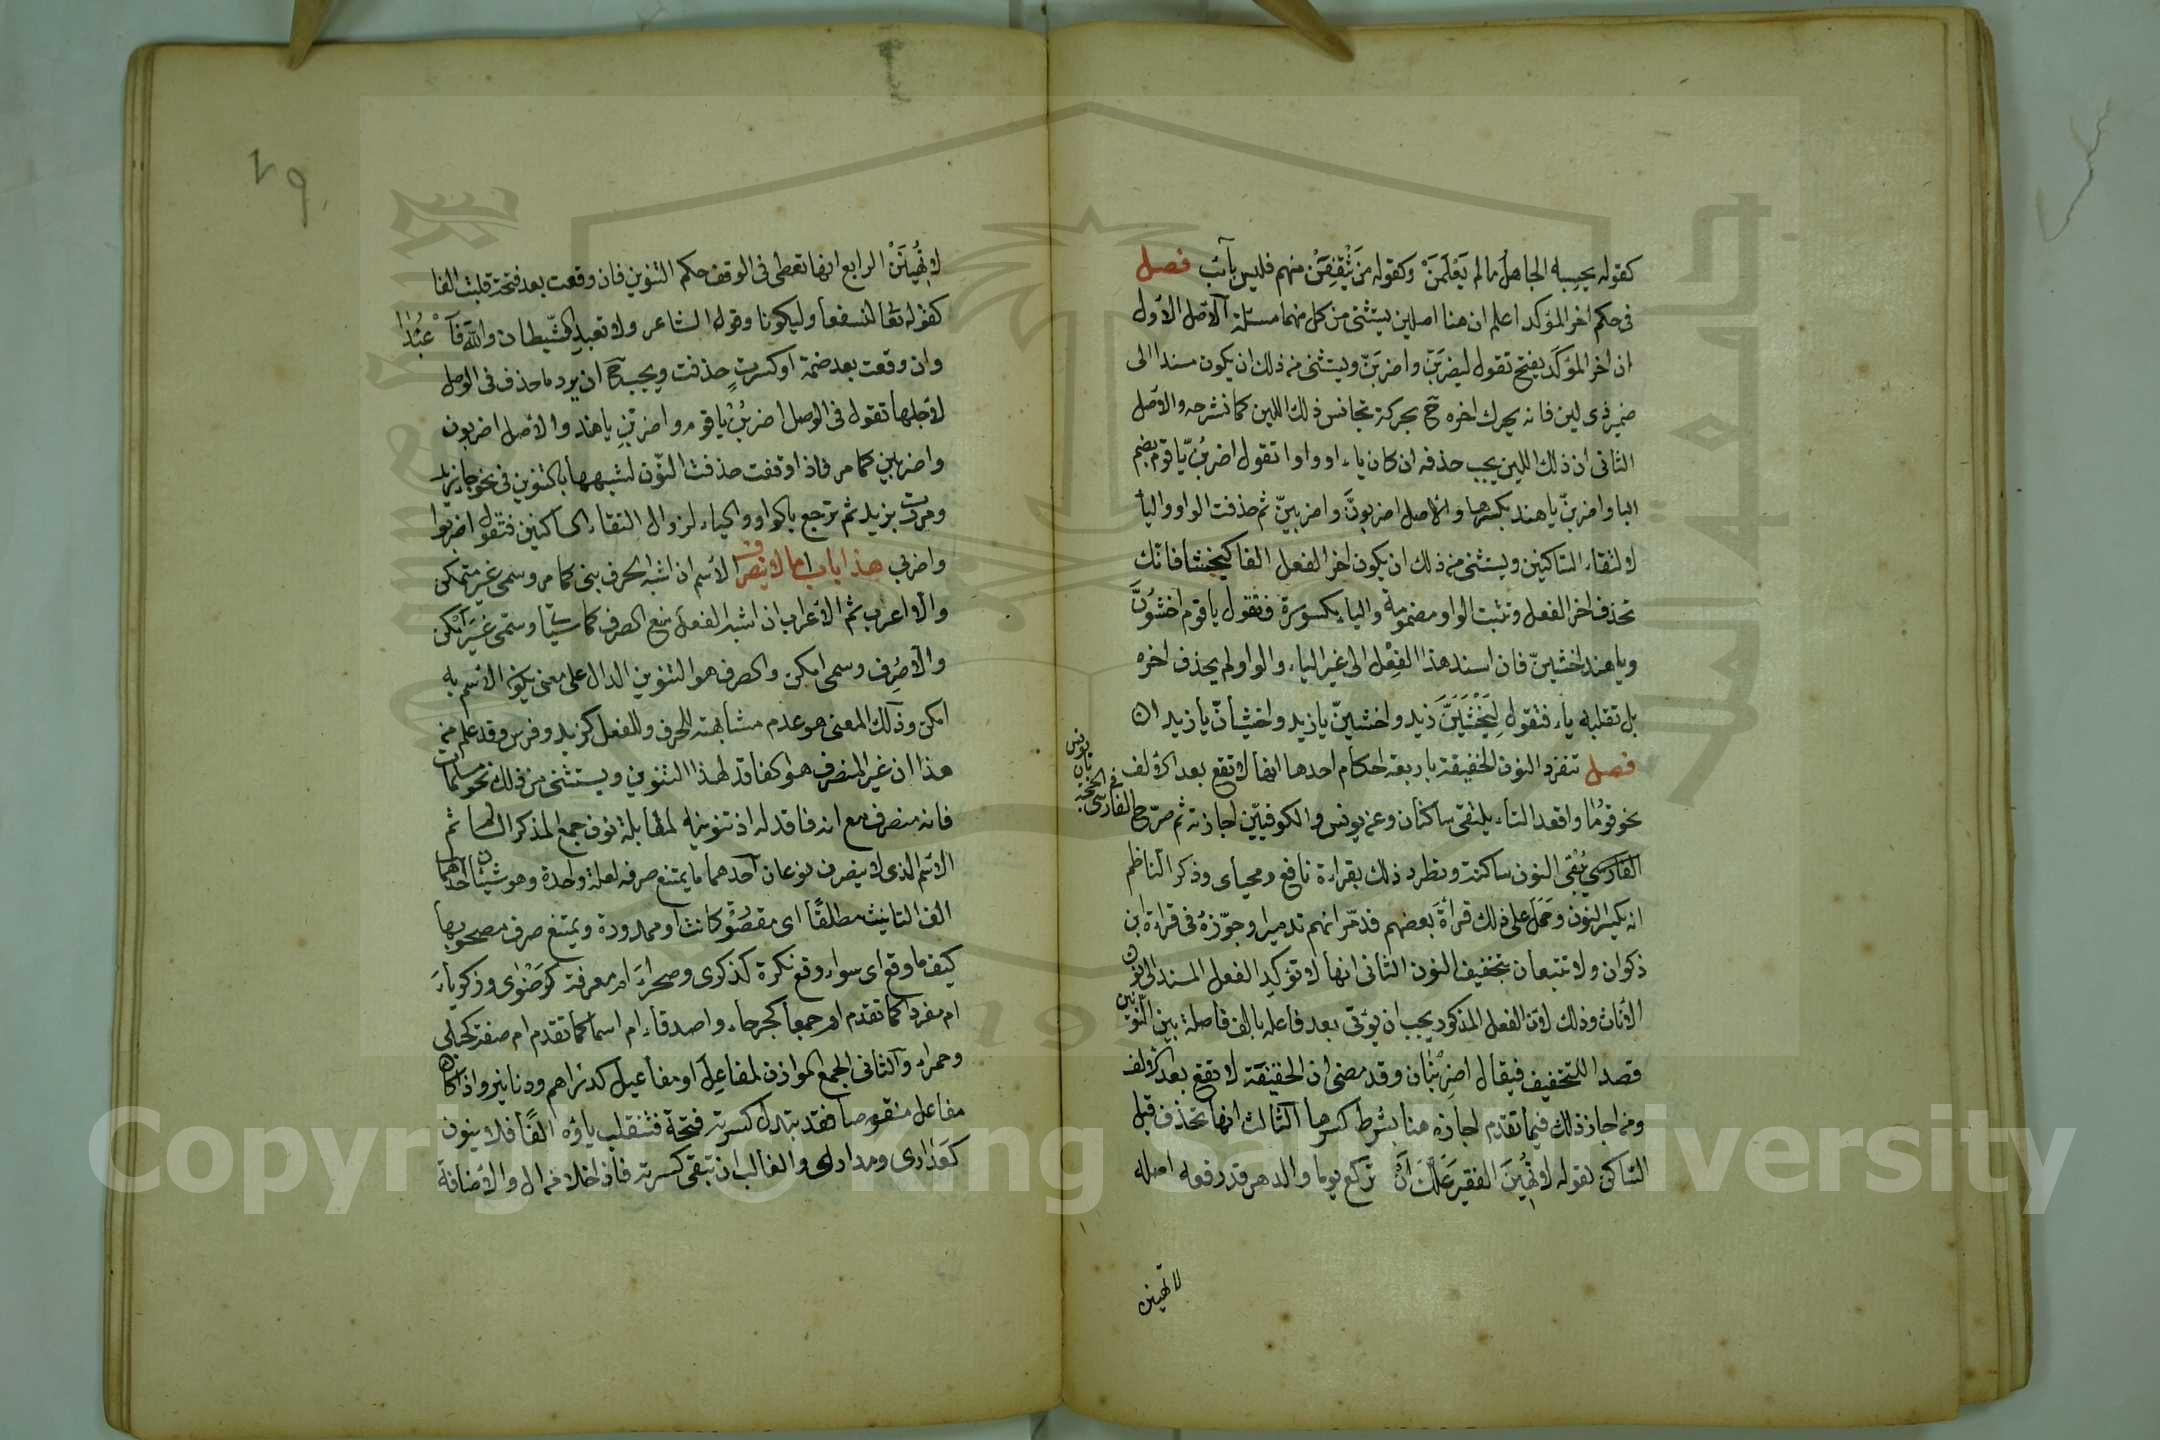 كقوله يحسبه الجاهل ما لم يَعْلَمَنْ وكقوله مَن نثْقفَنْ منهم فليس بآئب فصل
فى حكم اخر المؤكد اعلم ان هنا اصلين يستثنى من كل منهما مسئلة الاصل الاول
ان اخر المؤكد يفتح تقول ليضربَنّ واضربَنّ ويستثنى من ذلك ان يكون مسندا الى
ضمير ذى لين فانه يحرك اخره ح بحركة تجانس ذلك اللين كما نشرحه والاصل
الثانى ان ذلك اللين يجب حذفه ان كان ياء او واوا تقول اضربُنّ يا قوم بضم
البا واضربِنّ يا هند بكسرها والاصل اضربونَّ واضربينّ ثم حذفت الواو واليا
لالتقاء الساكنين ويستثنى من ذلك ان يكون اخر الفعل الفا كيخشا فانك
تحذف اخر الفعل وتثبت الواو مضمومة والياء مكسورة فتقول يا قوم اخشوُنَّ
ويا هند اخشيِنّ فان اسند هذا الفِعْل الى غير الياء والواو لم يحذف اخره
بل تقلبه ياء فتقول لِيَخْشَيَنَّ زيد واخشينّ يا زيد واخشيانّ يا زيدان
فصل تنفرد النون الخفيفة باربعة احكام احدها انها لا تقع بعد الالف
نحو قومَا واقعدا لئلا يلتقى ساكنان وعن يونس والكوفيّين اجازته ثم صرّح الفارسى فى الحجة بان يونس
الفارسي يُبْقى النون ساكنة ونظر ذلك بقراءة نافع ومحياى وذكر الناظم
انه يكسر النون وحَمَل على ذلك قراةَ بعضهم فدمّرانهم تدميرا وجوّزهُ فى قراءة ابن
ذكوان ولا تتبعان بتخفيف النون الثانى انها لا تؤكدِ الفعل المسند الى نون
الاناث وذلك لان الفعل المذكور يجب ان يؤتى بعد فاعله بالف فاصلة بين النونين
قصدا للتخفيف فيقال اضربْنَان وقد مضى ان الخفيفة لا تقع بعد الالف
ومن اجاز ذلك فيما تقدم اجازه هنا بشرط كسرها الثالث انها تحذف قبل
الساكن كقوله لا تهينَ الفقير عَلّكَ انْ تركع يوما والدهر قد رفعه اصله
لا تهينن
٧٩
لا تهُينَنْ الرابع انها تعطى فى الوقف حكم التنوين فان وقعت بعد فتحة قلبت الفا
كقوله تعالى لنسفعا وليكونا وقول الشاعر ولا تعبدِ الشّيطان واللّه فاعْبُدَا
وان وقعت بعد ضمة او كسرة حذفت ويجب ح ان يرد ما حذف فى الوصل
لاجلها تقول فى الوصل اضربُنْ يا قوم واضربِنِ يا هند والاصل اضربون
واضربين كما مر فاذا وقفت حذفت النّون لشبهها بالتنوين فى نحو جا زيد
ومررت بزيد ثم ترجع بالواو والياء لزوال التقاء الساكنين فتقول اضربوا
واضربي هذا باب ما لا ينصرف الاسم ان اشبه الحرف بنى كما مر وسمى غير متمكن
والا اعرب ثم الاعراب ان اشبه الفعلَ منع الصرف كما سيأتى وسمّى غيرَ امكن
والا صُرف وسمى امكن والصرف هو التنوين الدال على معنى يكون الاسم به
امكن وذلك المعنى هو عدم مشابهته للحرف وللفعل كزيد وفرس وقد علم من
هذا ان غير المنصرف هو الفاقد لهذا التنوين ويستثنى من ذلك نحو مسلمات
فانه منصرف مع انه فاقد له اذ تنوينه لمقابلة نون جمع المذكر السالم ثم
الاسم الذى لا ينصرف نوعان احدهما ما يمتنع صرفه لعلة واحدة وهو شيئان احدهما
الف التانيث مطلقًا اى مقصُورة كانت او ممدودة ويمتنع صرف مصحوبها
كيف ما وقع اى سواء وقع نكرة كذكرى وصحراءَ ام معرفة كرَضْوى وزكرياءَ
ام مفردا كما تقدم ام جمعا كجرحاء واصدقاء ام اسما كما تقدم ام صفة كحبلى
وحمراء والثانى الجمع الموازن لمفاعِلَ او مفاعيل كدراهم ودنانير واذا كان
مفاعل منقوصا فقد تبدل كسرته فتحة فتنقلب ياؤه الفًا فلا ينون
كعذارى ومدارى والغالب ان تبقى كسرته فاذا خلا من ال والاضافة